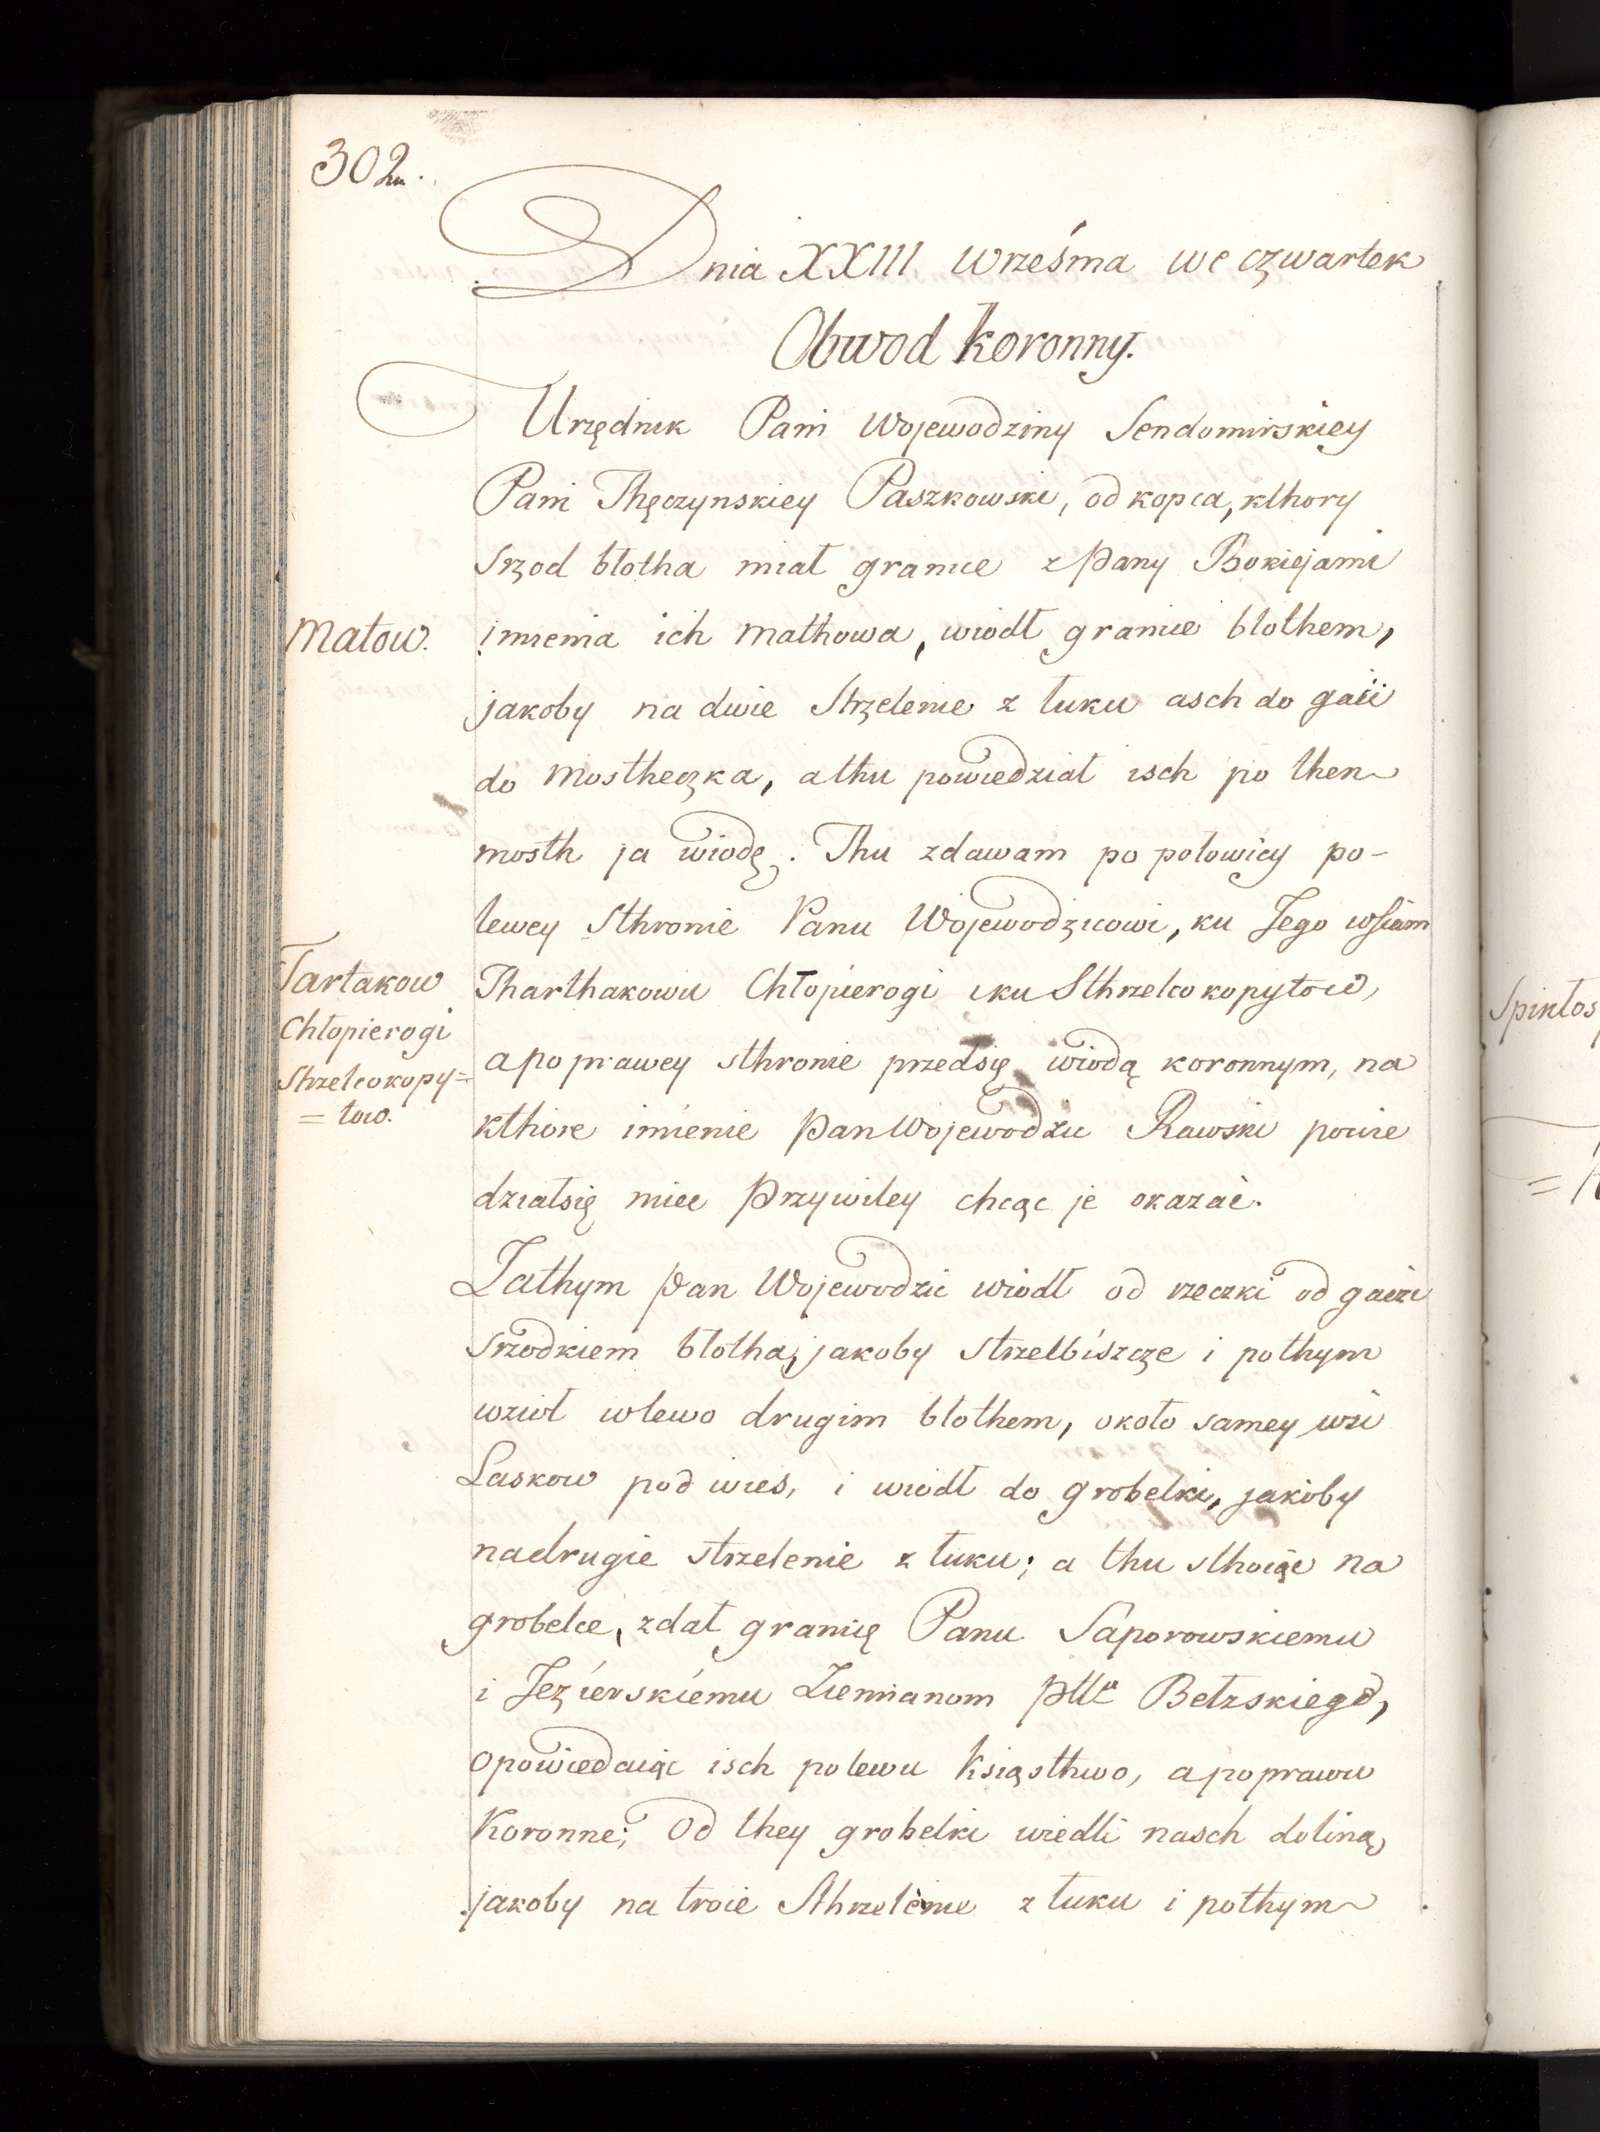 302.
Dnia XXIII wrzesnia we czwartek
Obwod koronny.
Urzędnik Pani Wojewodziny Sendomirskiey
Pani Thęczynskiey Paszkowski, od kopca, kthory
srzod błotha miał granice z Pany Bokiejami
Matow.
imienia ich Mathowa, wiodł granice błothem,
jakoby na dwie Strzelenie z łuku asch do gaii
do Mostheczka, a thu powiedział isch po then
mosth ja wiodę. Thu zdawam po połowicy po-
lewey Sthronie Panu Wojewodzicowi, ku Jego wsiam
Tartakow
Chłopierogi
Strzelcokopy=
= tow.
Tharthakowu Chłopierogi i ku Sthrzelcokopytow,
a po prawey sthronie przedsię wiodą koronnym, na
kthore imienie Pan Wojewodzic Rawski powie
działsię miec Przywiley chcąc je okazać.
Zathym Pan Wojewodzic wiodł od rzeczki od gaci
srzodkiem błotha, jakoby strzelbiszcze i pothym
wziół wlewo drugim błothem, około samey wsi
Laskow pod wies, i wiodł do grobelki, jakoby
nadrugie strzelenie z łuku; a thu sthoiąc na
grobelce, zdał granicę Panu Saporowskiemu
i Jezierskiemu Ziemianom Bełzskiego,
opowiedaiąc isch polewu Książthwo, a poprawu
Koronne; Od they grobelki wiedli nasch doliną,
jakoby na troie Sthrzelenie z łuku i pothym